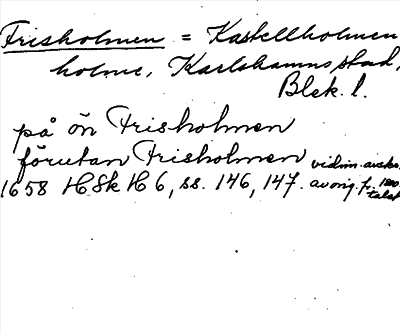 Frisholmen = Kastellholmen
holme, Karlshamns stad,
Blek. l.
på ön Frisholmen
förutan Frisholmen vidim. avskr.
1658 HSk H 6, ss. 146, 147. av orig. fr. 1800
talet